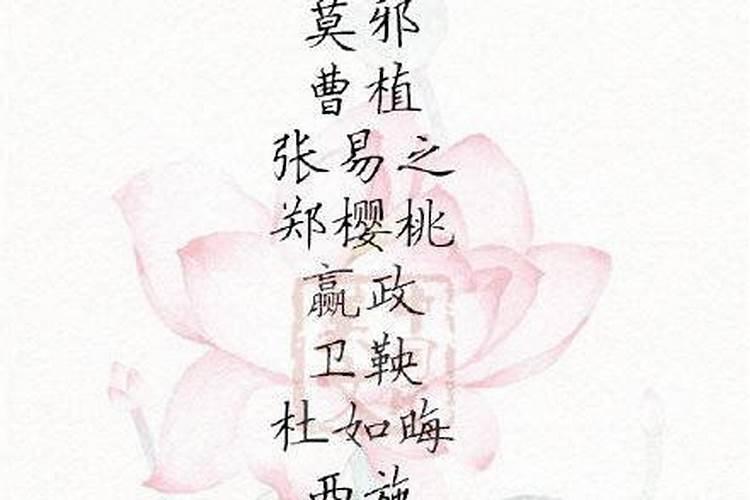 莫邪
曹植
张易之
郑樱桃
赢政
卫鞅
杜如晦
西施